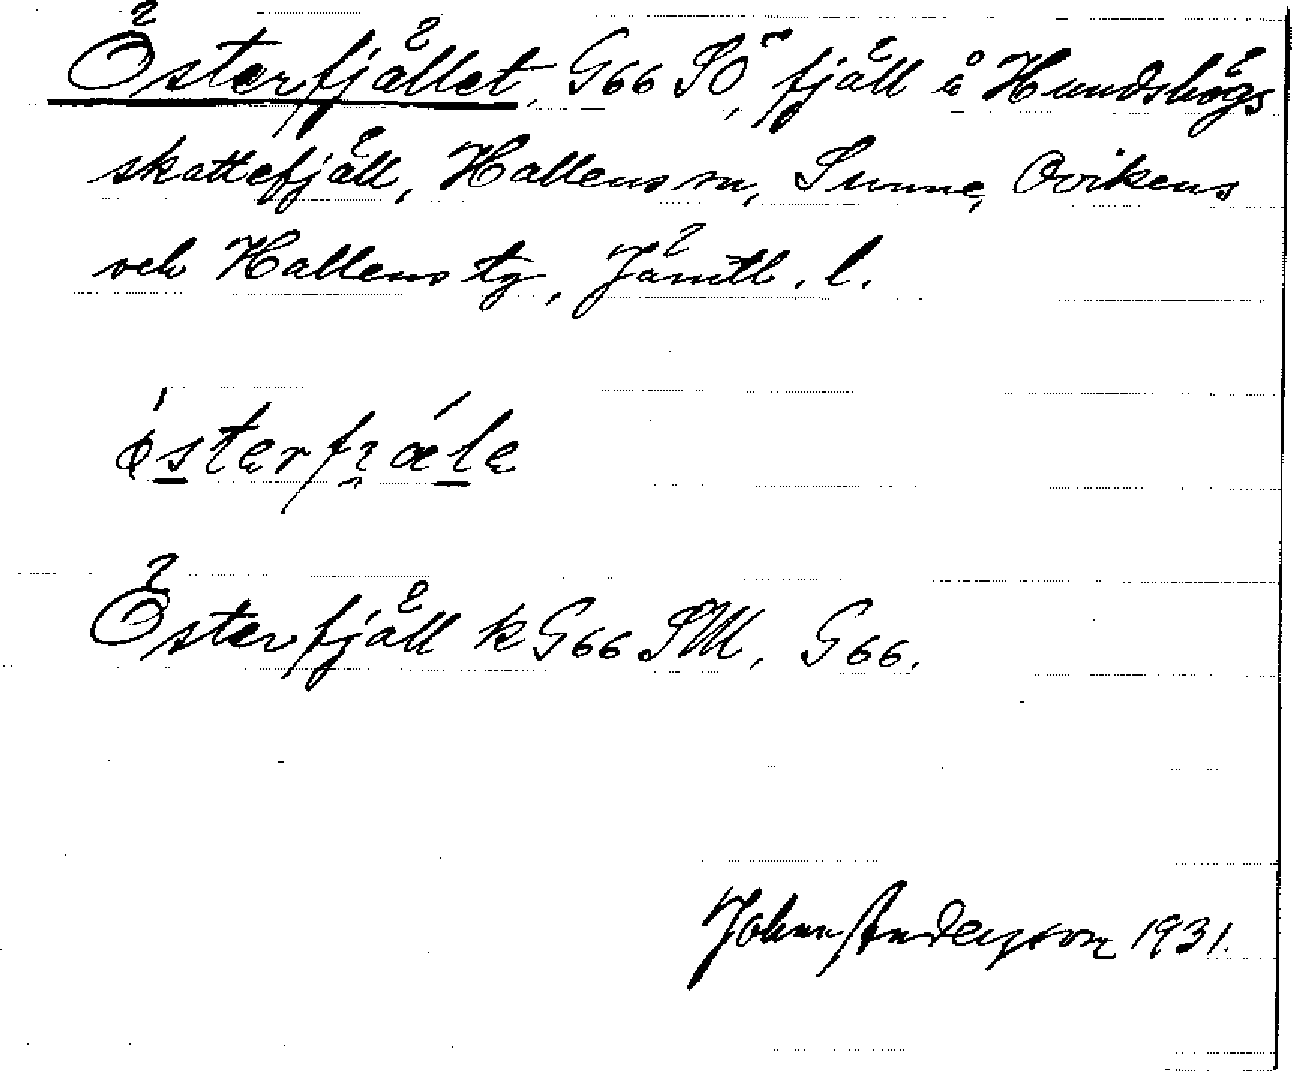 Österfjället, G66 SÖ, fjäll å Hundshögs
skattefjäll, Hallens sn, Sunne, Ovikens
och Hallens tg, Jämtl. l.
östərfjælɐ
Österfjäll k G66 SM, G66.
Johan Anderson 1931.